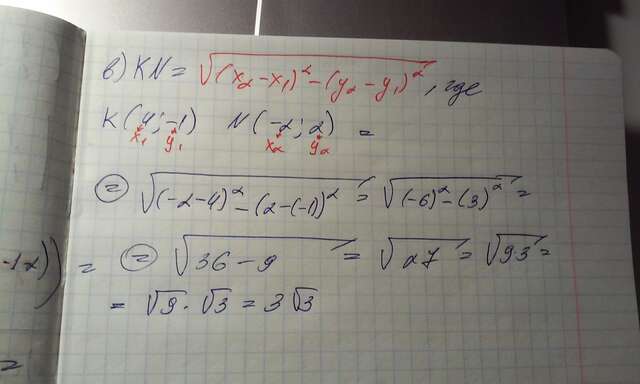 в) KN = √(x₂ - x₁)² - (y₂ - y₁)², где
K(4; -1) N(-2; 2) =
x₁ y₁ x₂ y₂
= √(-2-4)² - (2-(-1))² = √(-6)² - (3)² =
-12)) = = √36 - 9 = √27 = √93 =
= √9 · √3 = 3√3
=